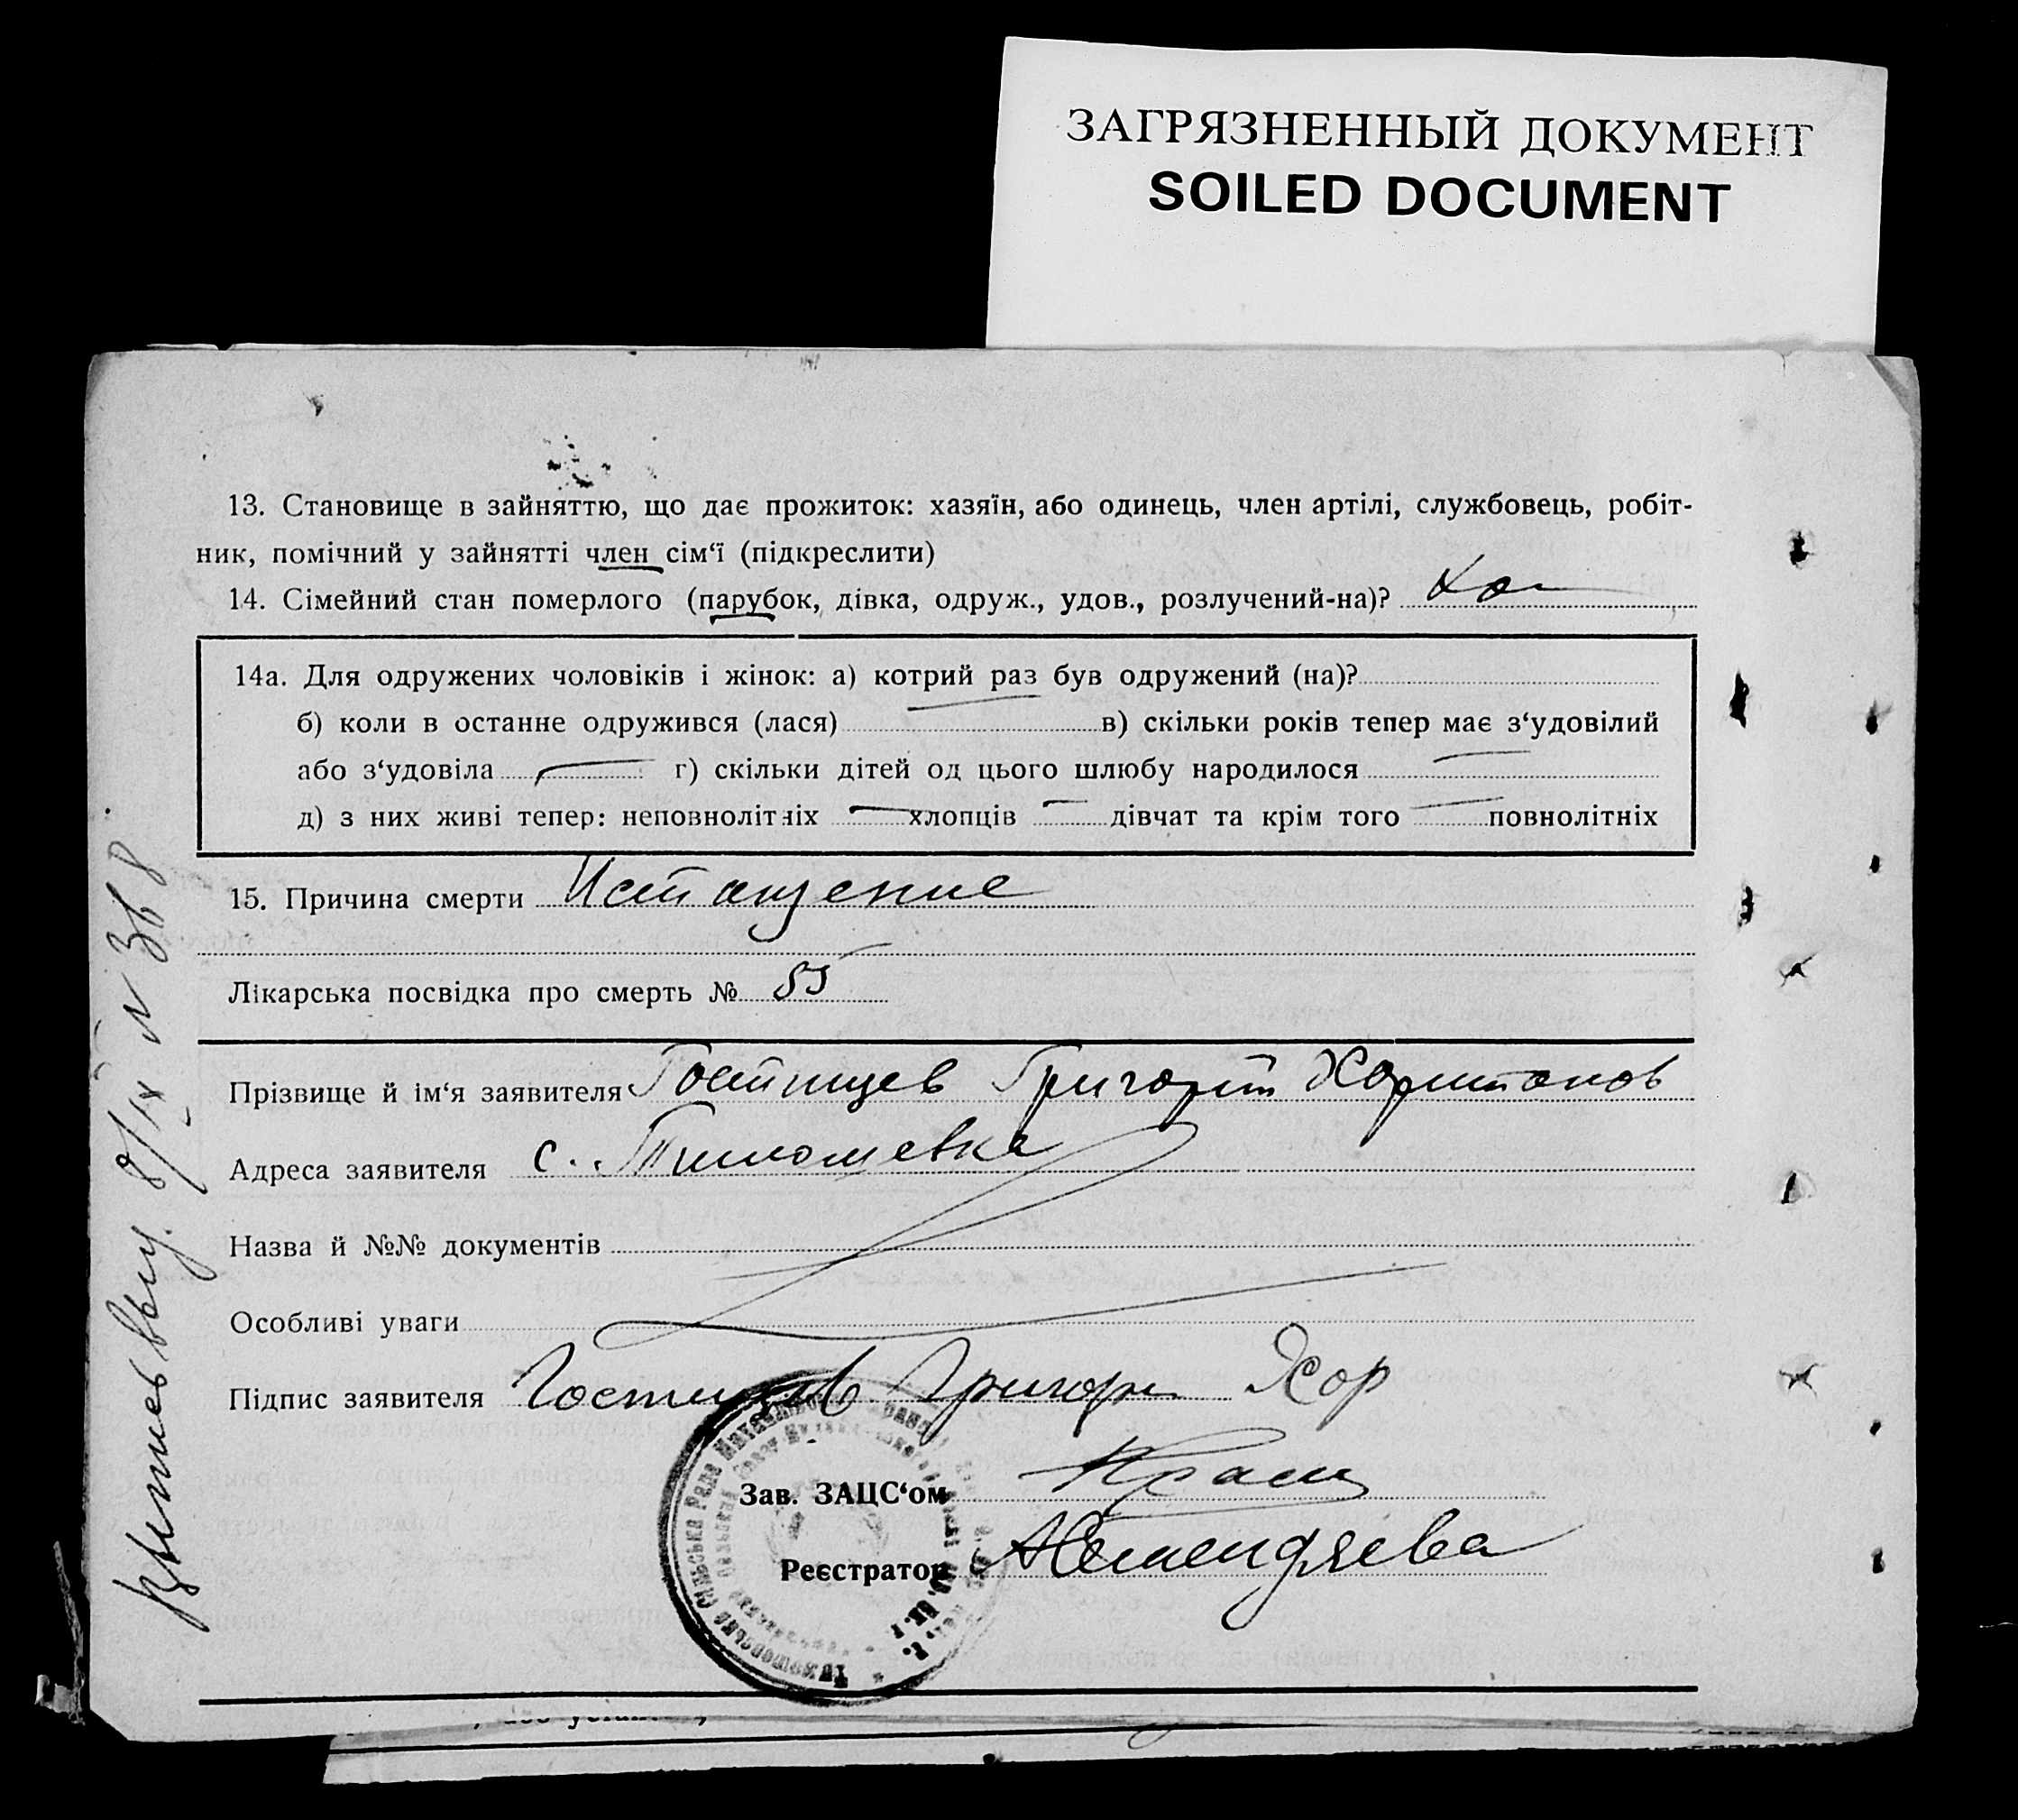 ЗАГРЯЗНЕННЫЙ ДОКУМЕНТ
SOILED DOCUMENT
13. Становище в зайняттю, що дає прожиток: хазяїн, або одинець, член артілі, службовець, робіт-
ник, помічний у зайнятті член сім‘ї (підкреслити)
14. Сімейний стан померлого (парубок, дівка, одруж., удов., розлучений-на)?
14а. Для одружених чоловіків і жінок: а) котрий раз був одружений (на)?
б) коли в останне одружився (лася) в) скільки років тепер має з‘удовілий
або з‘удовіла г) скільки дітей од цього шлюбу народилося
д) з них живі тепер: неповнолітніх хлопців дівчат та крім того повнолітніх
15. Причина смерти Истощение
Лікарська посвідка про смерть № 55
Прізвище й ім‘я заявителя Гостищев Григорий Харитонов
Адреса заявителя с. Тимошевка
Назва й №№ документів
Особливі уваги
Підпис заявителя Гостищев Григори Хор
Зав. ЗАЦС‘ом
Реєстратор
8/IX № 368